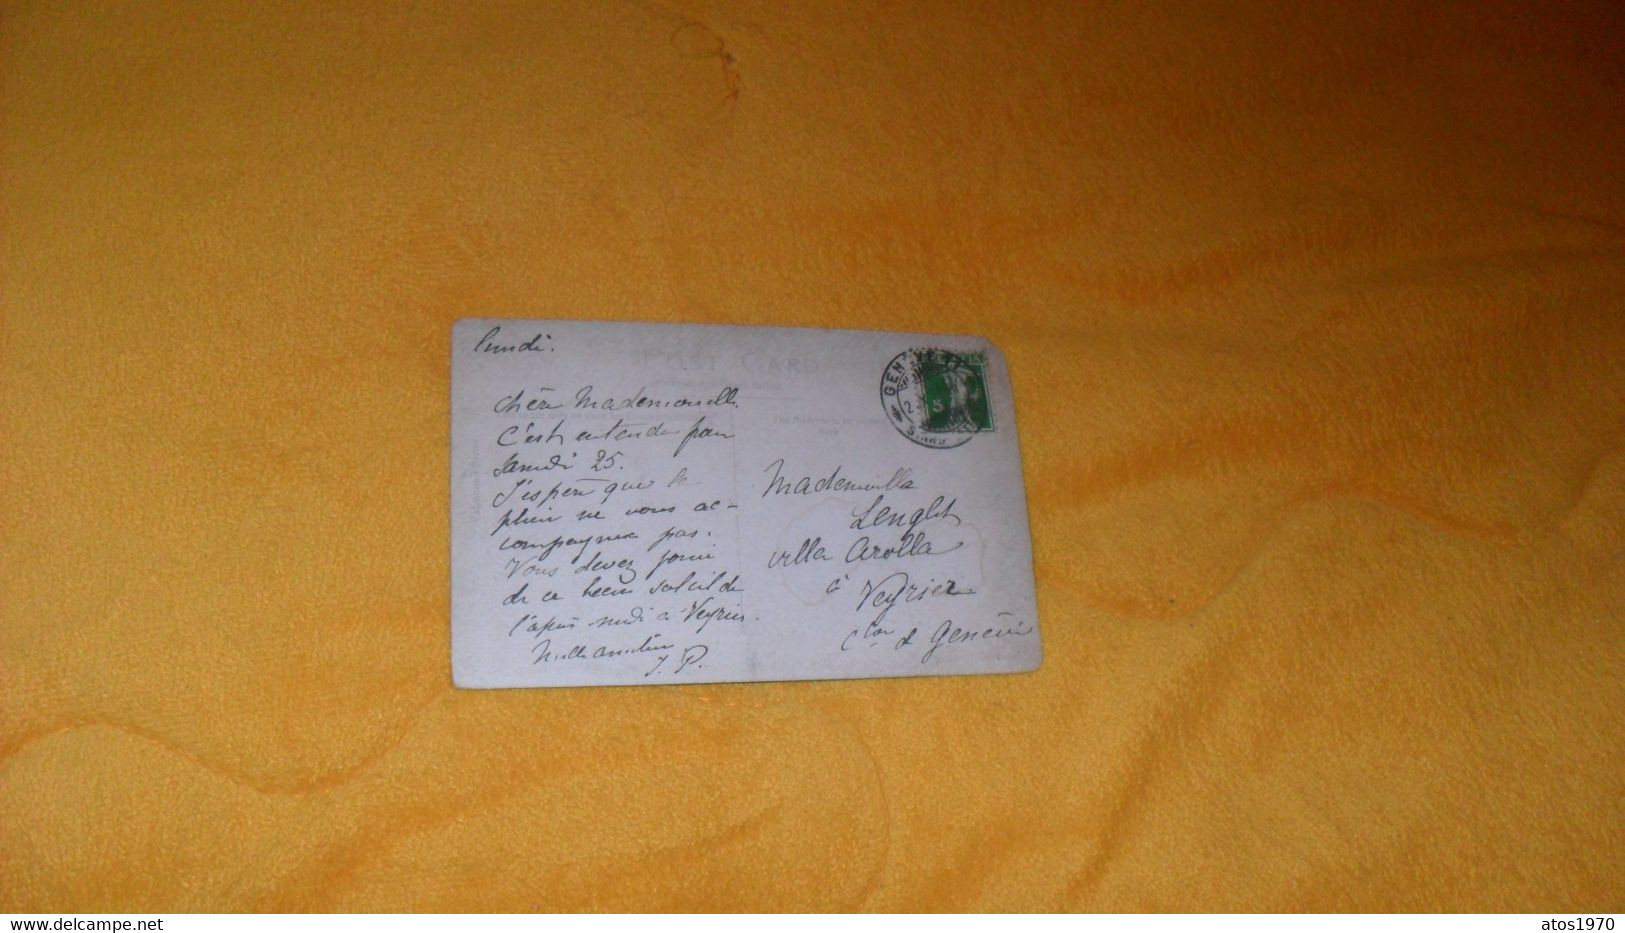 lundi.
POST CARD
Chère Mademoiselle.
C'est entendu pour
samedi 25.
J'espère que la
pluie ne vous ac-
compagnera pas.
Vous devez jouir
de ce beau soleil de
l'après-midi à Veyrier.
J. P.
GENÈVE
HELVETIA
5
Mademoiselle
Lenglet
villa Arolla
à Veyrier
Cton de Genève
delcampe.net
atos1970